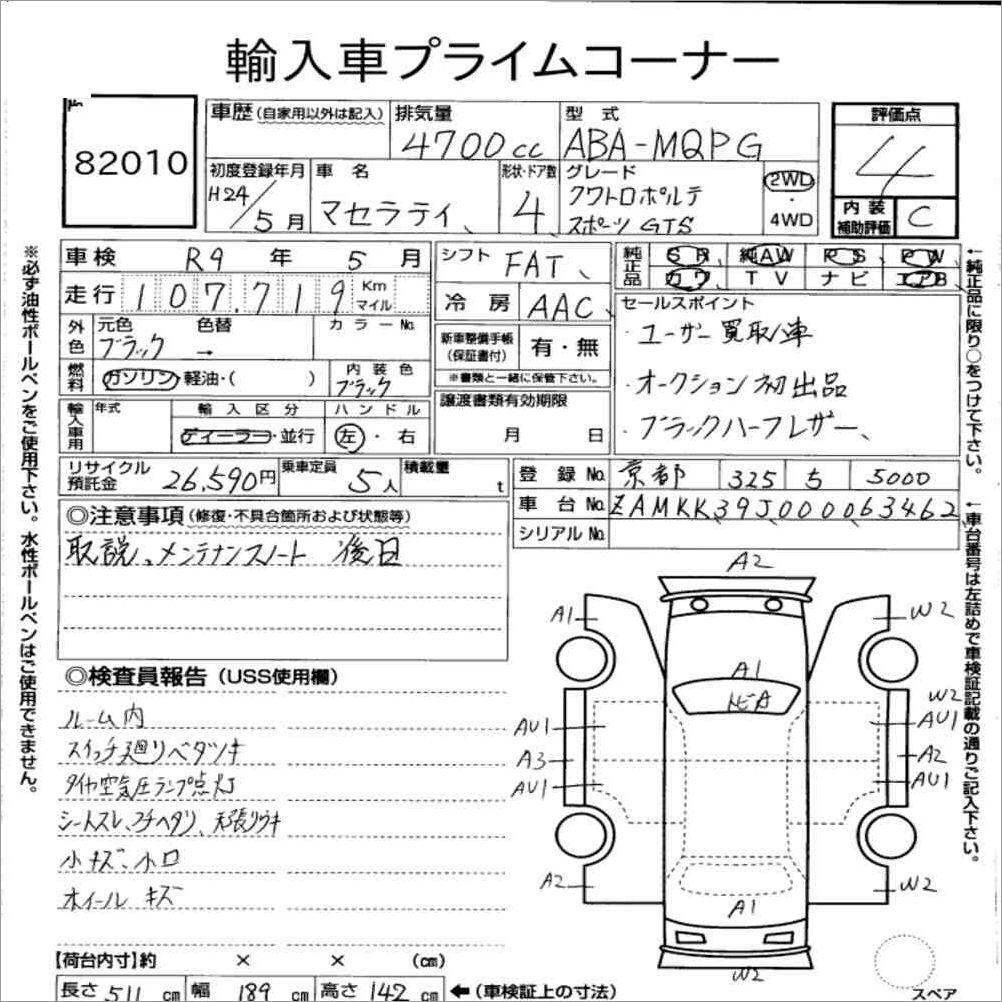 輸入車プライムコーナー
82010
車歴 (自家用以外は記入)
排気量
4700cc
型式
ABA-MQPG
評価点
4
初度登録年月
H24/5月
車名
マセラティ
形状・ドア数
4
グレード
クワトロポルテ
スポーツ GTS
2WD
・
4WD
内装
補助評価
C
車検 R9年 5月
走行 107,719 Km
マイル
シフト FAT
冷房 AAC
純正品
SR 純AW PS PW
カワ TV ナビ エアB
外色
元色 ブラック
色替 →
カラーNo.
燃料
ガソリン・軽油・( )
内装色
ブラック
新車整備手帳
(保証書付)
有・無
※書類と一緒に保管下さい。
セールスポイント
・ユーザー買取車
・オークション初出品
・ブラックハーフレザー、
輸入車用
年式
輸入区分
ディーラー・並行
ハンドル
左・右
譲渡書類有効期限
月 日
リサイクル
預託金
26,590円
乗車定員
5人
積載量
t
登録No. 京都 325 ち 5000
車台No. ZAMKK39J000063462
シリアルNo.
◎注意事項 (修復・不具合箇所および状態等)
取説、メンテナンスノート 後日
◎検査員報告 (USS使用欄)
ルーム内
スイッチ廻りベタツキ
タイヤ空気圧ランプ点灯
シートスレ、コチヘタリ、天張りウキ
小キズ、小凹
ホイール キズ
A2
A1
W2
A1
W2
AU1
AU1
A3
A2
AU1
AU1
A2
W2
A1
W2
スペア
【荷台内寸】約 × × (cm)
長さ 511 cm 幅 189 cm 高さ 142 cm ←(車検証上の寸法)
※必ず油性ボールペンをご使用下さい。水性ボールペンはご使用できません。
←純正品に限り○をつけて下さい。
←車台番号は左詰めで車検証記載の通りご記入下さい。